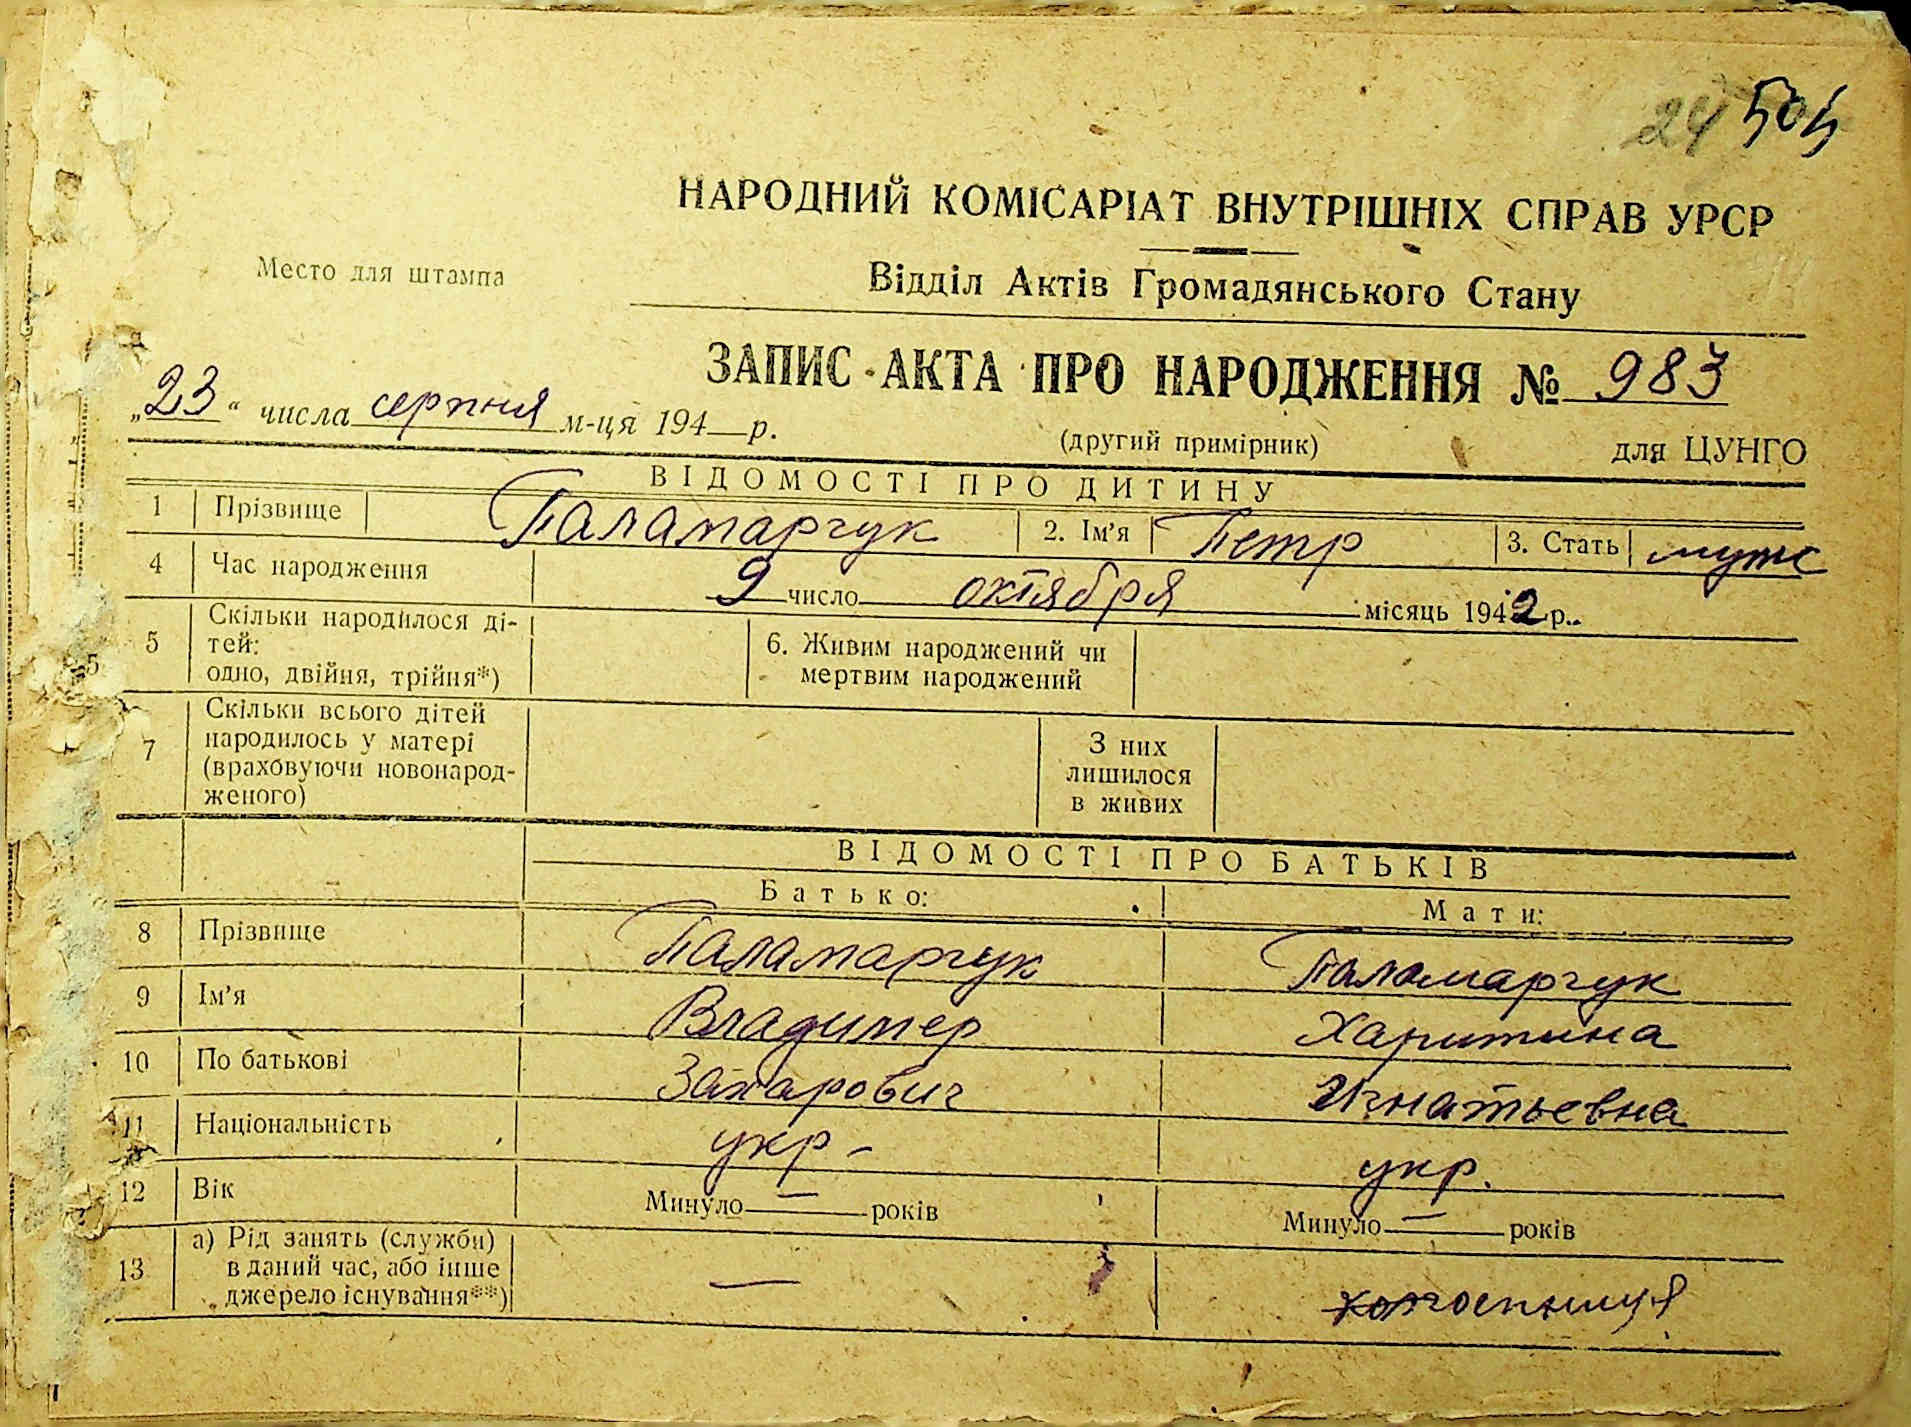 24 505
НАРОДНИЙ КОМІСАРІАТ ВНУТРІШНІХ СПРАВ УРСР
Место для штампа
Відділ Актів Громадянського Стану
ЗАПИС АКТА ПРО НАРОДЖЕННЯ № 983
„23“ числа серпня м-ця 194—р.
(другий примірник) для ЦУНГО
ВІДОМОСТІ ПРО ДИТИНУ
1 Прізвище Паламарчук 2. Ім’я Петр 3. Стать муж
4 Час народження 9 число октября місяць 1942 р..
5 Скільки народилося ді-
тей:
одно, двійня, трійня*)
6. Живим народжений чи
мертвим народжений
7 Скільки всього дітей
народилось у матері
(враховуючи новонарод-
женого)
З них
лишилося
в живих
ВІДОМОСТІ ПРО БАТЬКІВ
Батько: Мати:
8 Прізвище Паламарчук Паламарчук
9 Ім’я Владимер Харитина
10 По батькові Захарович Игнатьевна
11 Національність укр - укр.
12 Вік Минуло — років Минуло — років
13 а) Рід занять (служби)
в даний час, або інше
джерело існування**) — колгоспниця